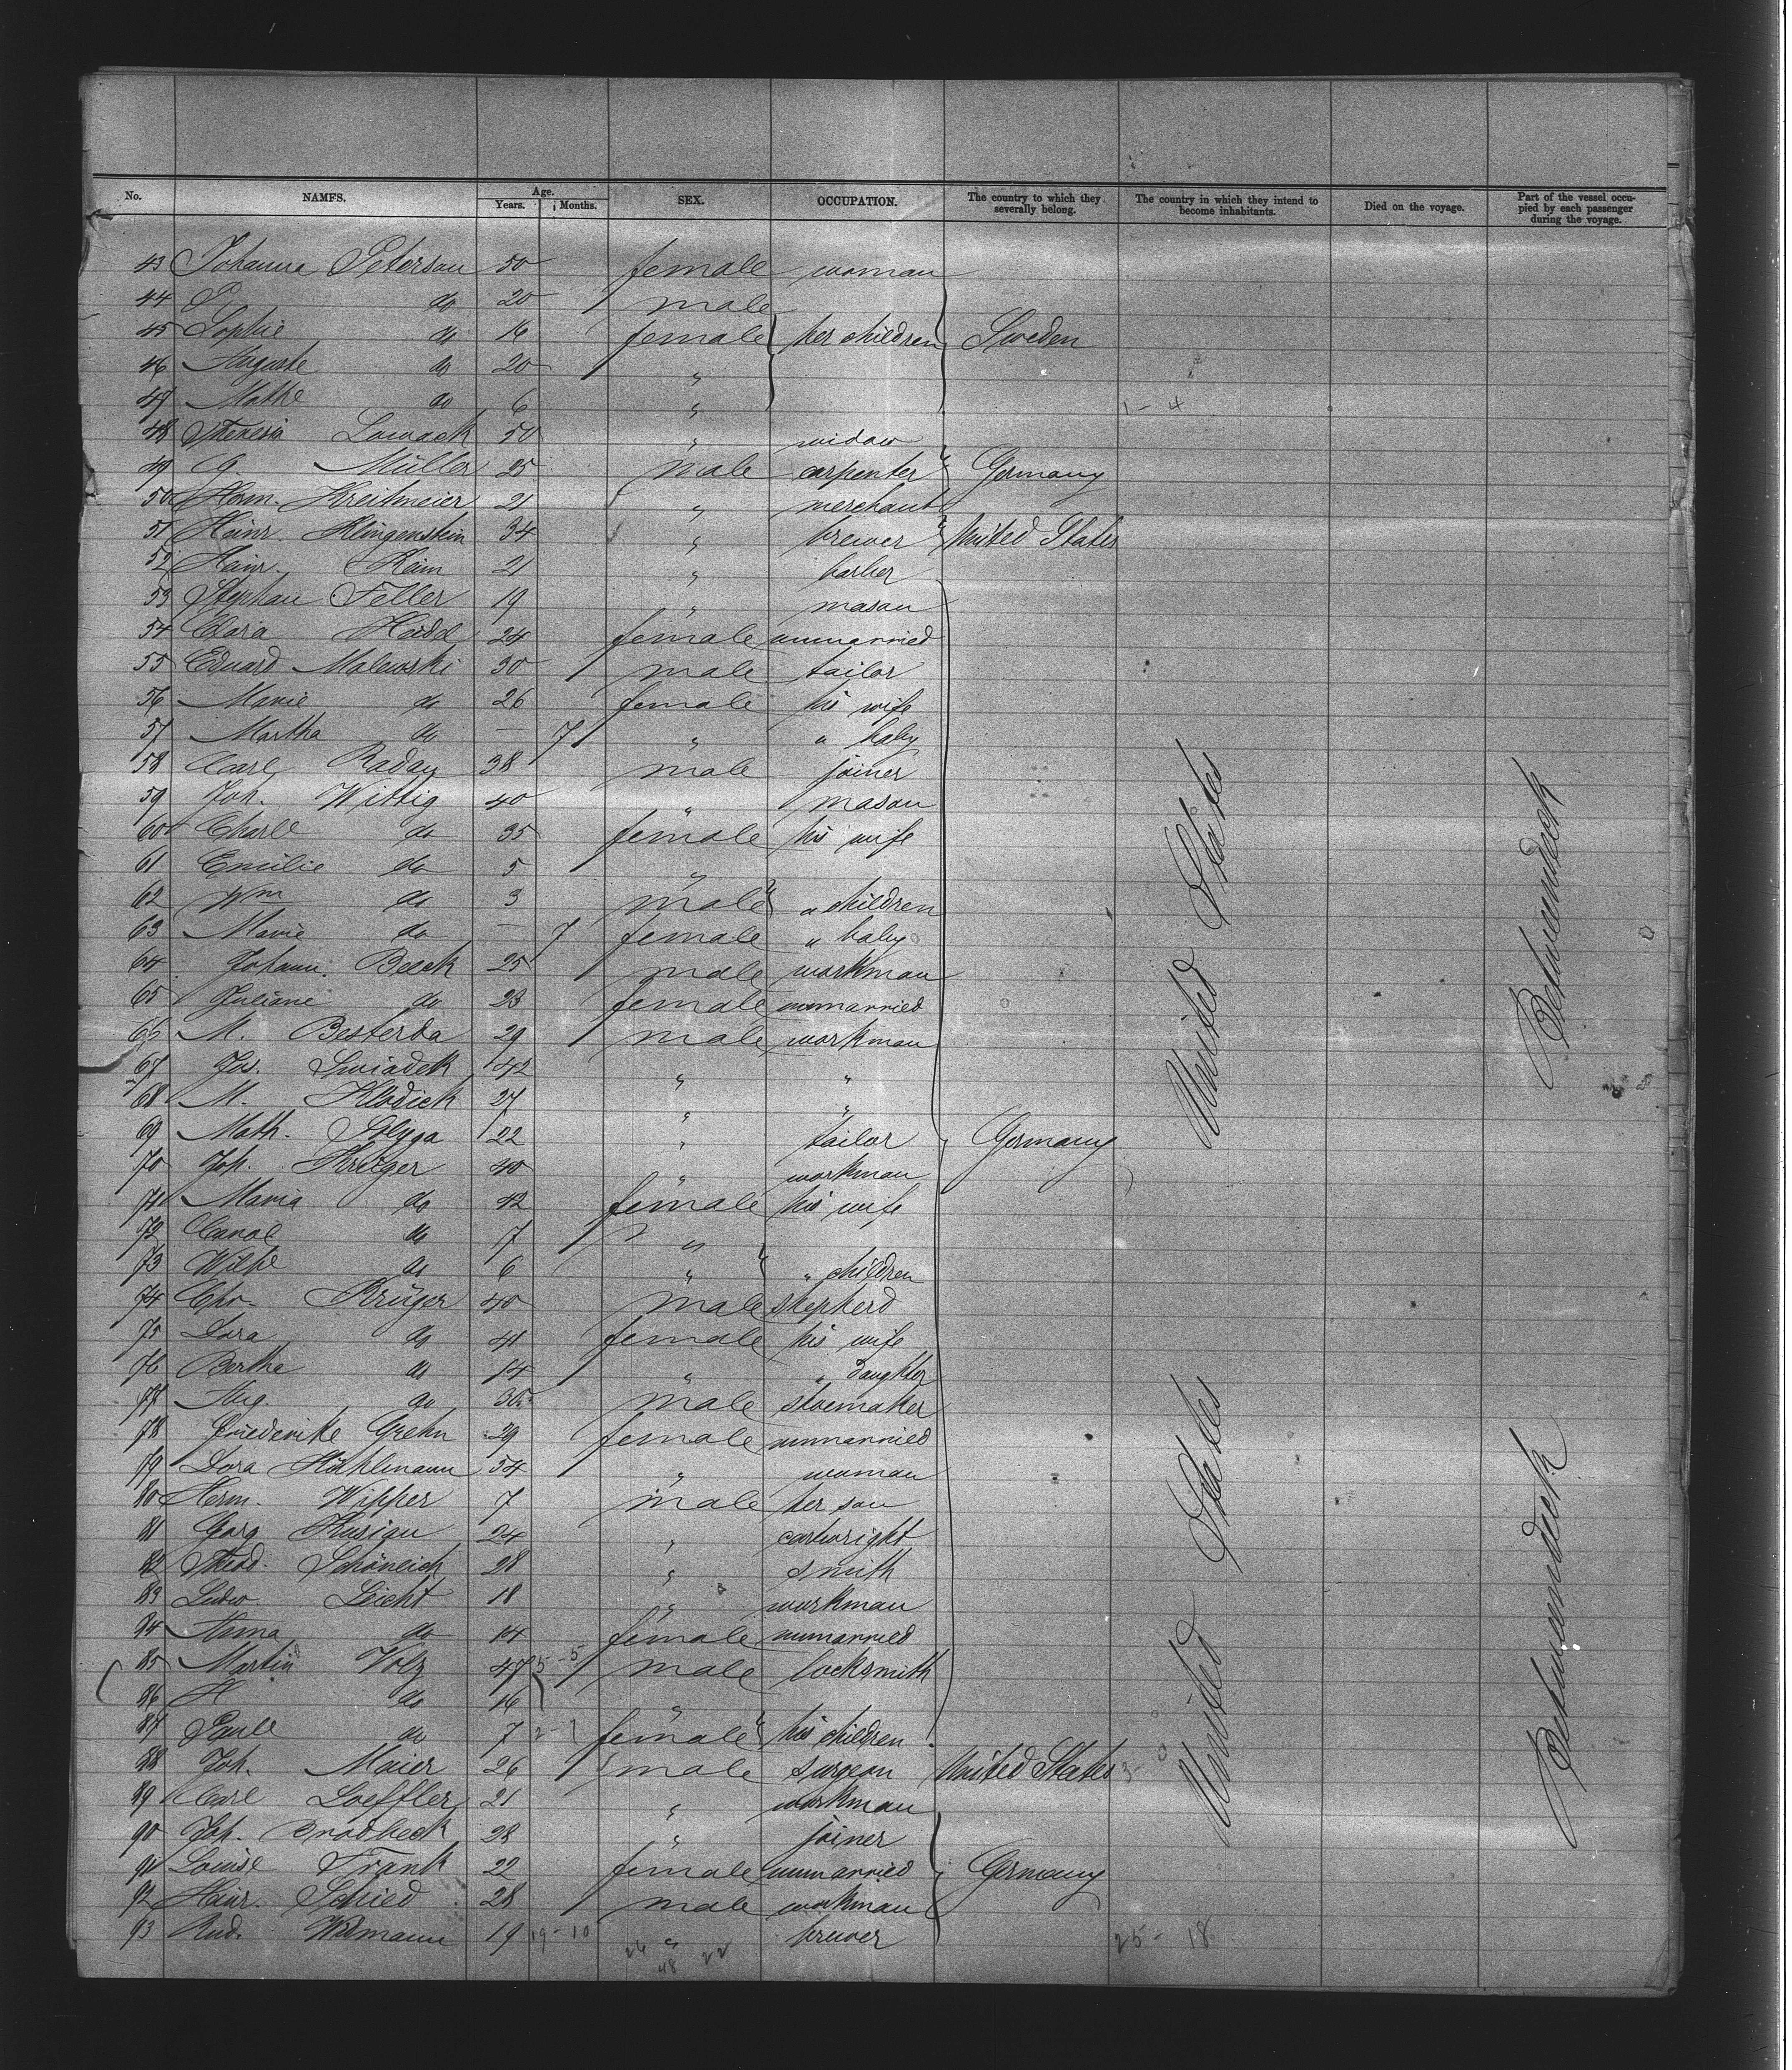 No. NAMES. Age. Years. Months. SEX. OCCUPATION. The country to which they severally belong. The country in which they intend to become inhabitants. Died on the voyage. Part of the vessel occupied by each passenger during the voyage.
43 Johanna Peterson 50 female woman
44 P. do 20 male
45 Sophie do 16 female her children Sweden
46 Auguste do 20 "
47 Mathe do 6 " 1 - 4
48 Theresia Lowack 50 " widow
49 G. Müller 25 male carpenter Germany
50 Herm. Kreitmeier 21 " merchant
51 Heinr. Klingenstein 34 " brewer United States
52 Heinr. Heim 21 " barber
53 Stephan Feller 19 " mason
54 Clara Haidd 24 female unmarried
55 Eduard Malewski 30 male tailor
56 Marie do 26 female his wife
57 Martha do — 7 " " baby
58 Carl Raday 38 male joiner
59 Joh. Wittig 40 " mason
60 Charl do 35 female his wife
61 Emilie do 5 "
62 Wm do 3 male " children
63 Marie do — 7 female " baby
64 Johann Beeck 25 male workman
65 Juliane do 23 female unmarried
66 M. Besterda 29 male workman
67 Jos. Swiadek 42 " "
68 M. Klodick 27 " "
69 Math. Solyga 22 " tailor Germany
70 Joh. Krüger 40 " workman
71 Maria do 42 female his wife
72 Carol do 7 "
73 Wilhe do 6 " " children
74 Chr. Krüger 40 male shepherd
75 Dora do 41 female his wife
76 Bertha do 14 " " daughter
77 Aug. do 30 male shoemaker
78 Friederike Grehn 29 female unmarried
79 Dora Kählmann 54 " woman
80 Herm. Wipper 7 male her son
81 Georg Kusian 24 " cartwright
82 Theod. Schöneich 28 " smith
83 Ludw. Leicht 18 " workman
84 Anna do 14 female unmarried
85 Martin Volz 47 5 - 5 male locksmith
86 H do 16 "
87 Paule do 7 2 - 1 female his children
88 Joh. Maier 26 male surgeon United States
89 Carl Loeffler 21 " workman
90 Joh. Brodbeck 28 " joiner
91 Louise Frank 22 female unmarried Germany
92 Heinr. Schied 28 male workman
93 Rud. Widmann 19 19 - 10 " brewer 25 - 18
26 22
48
United States
United States
Betweendeck
Betweendeck